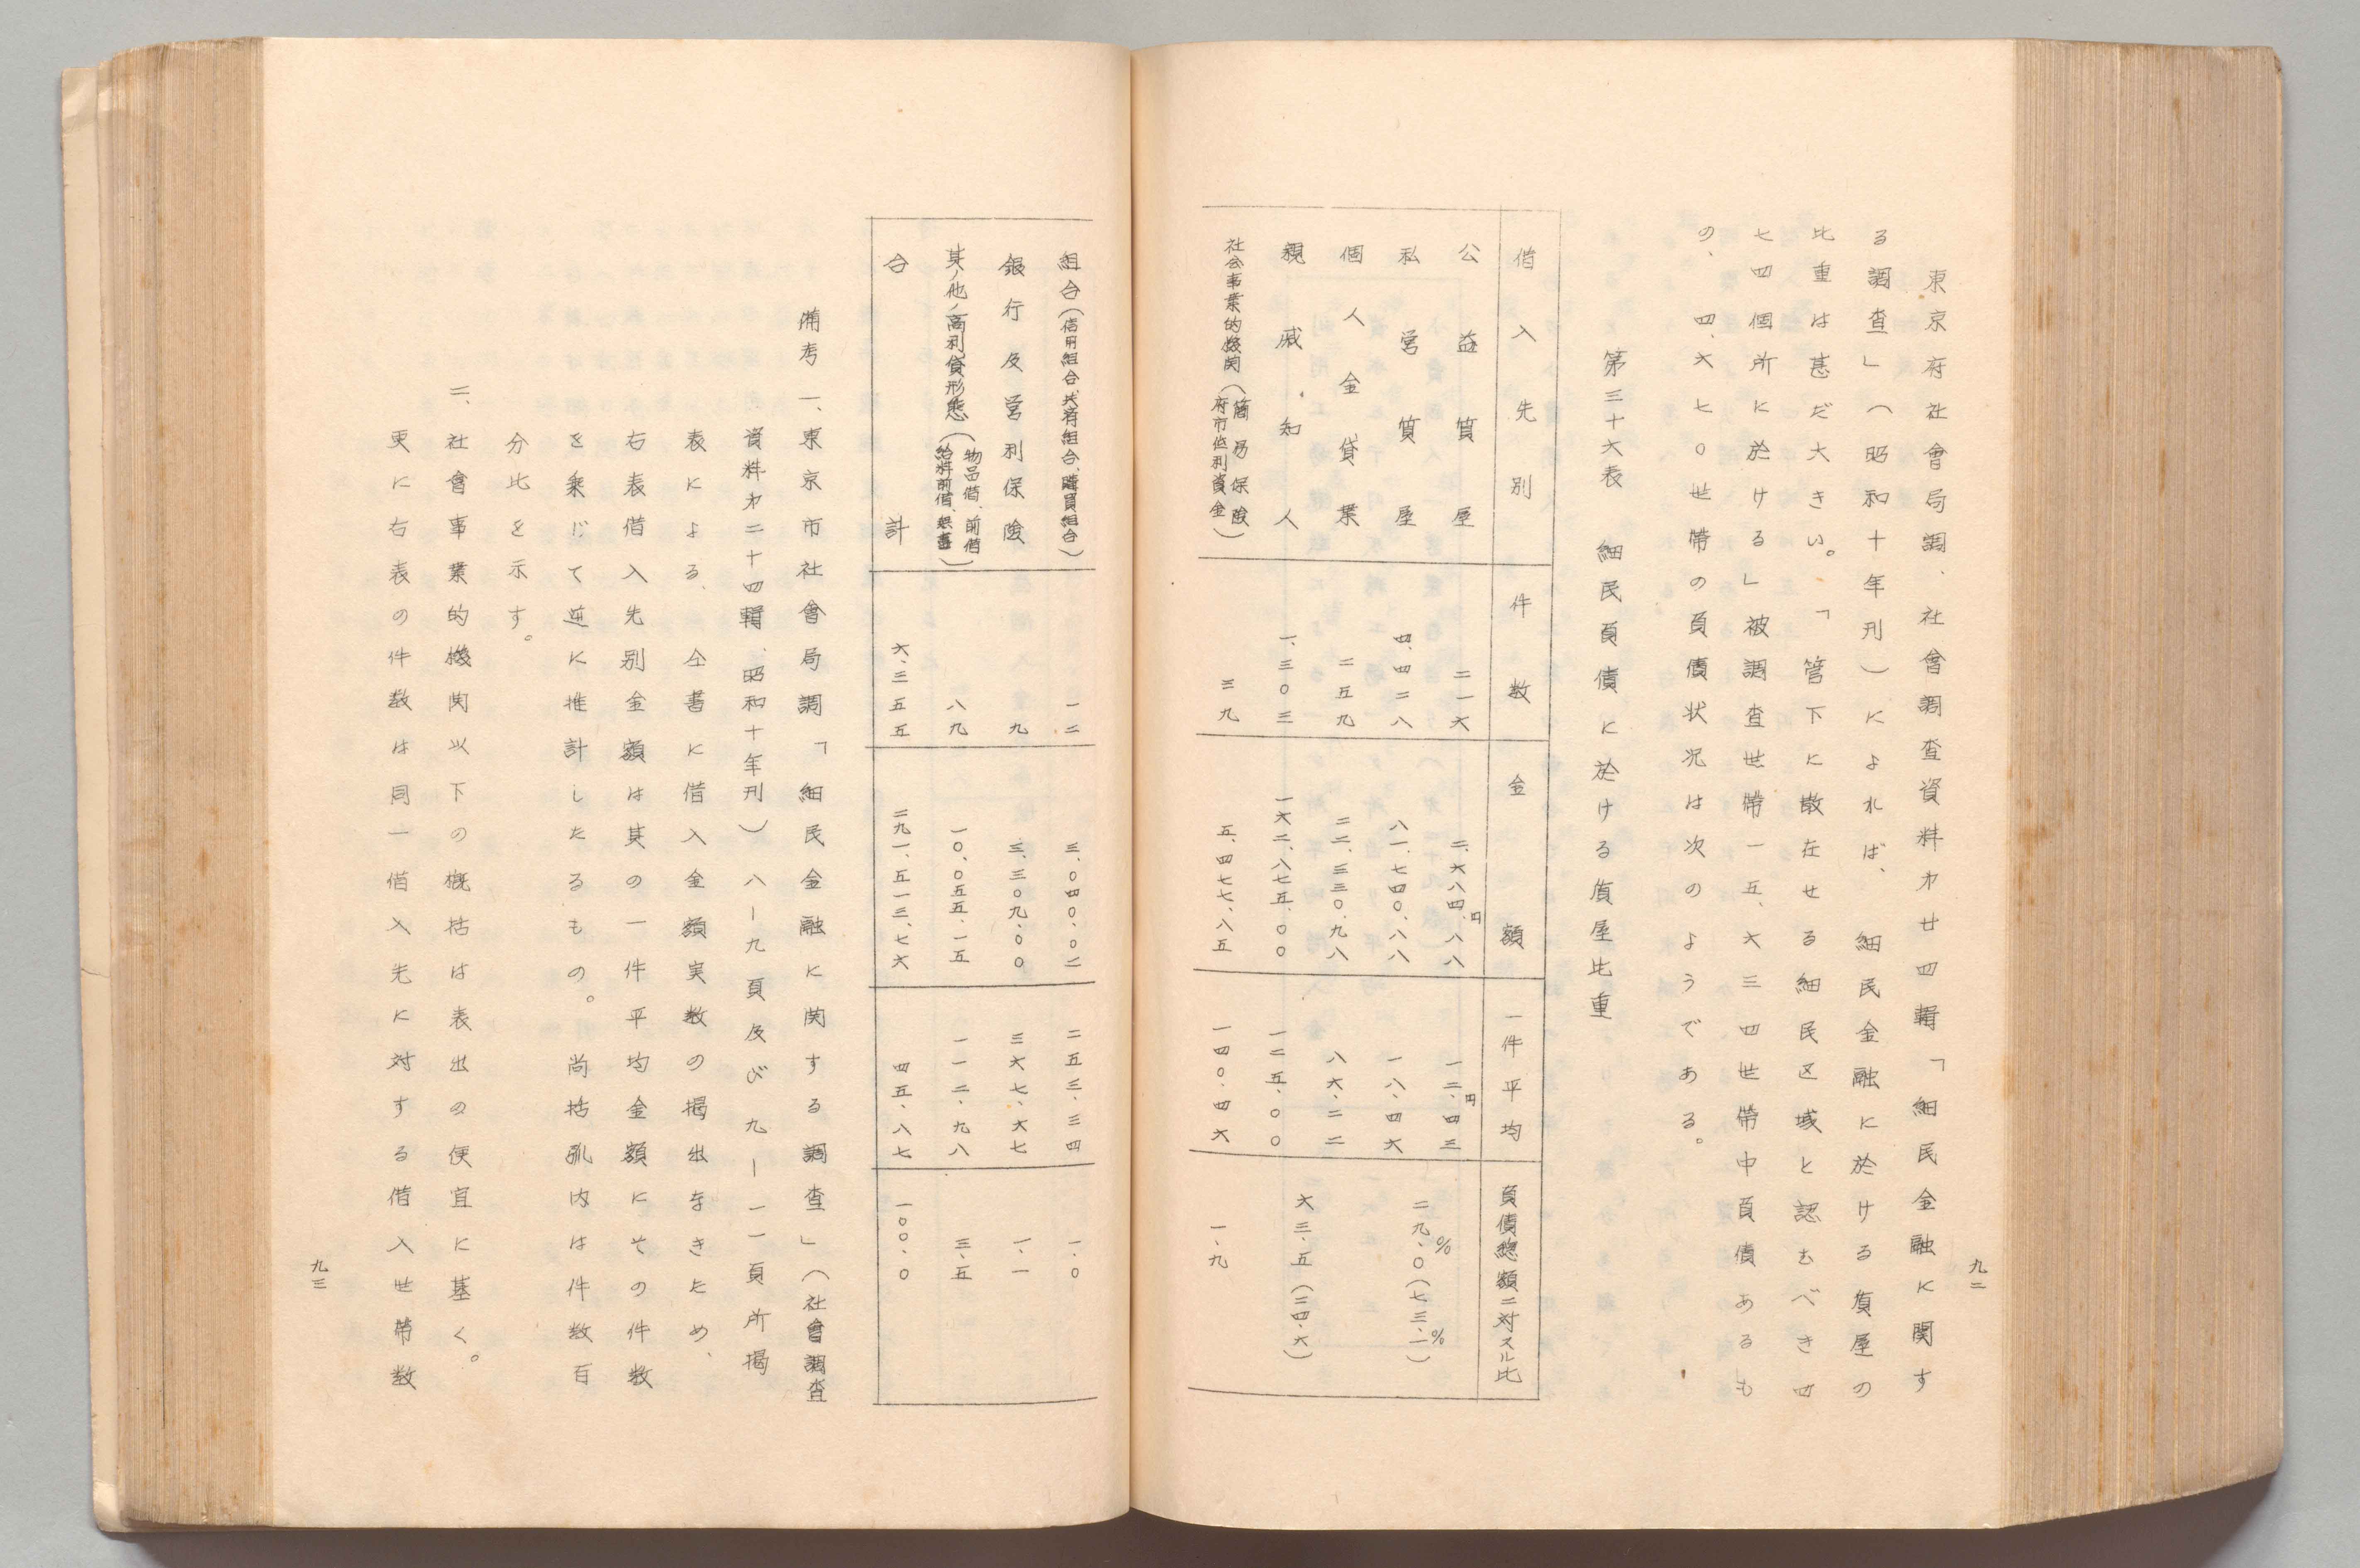 九二
東京府社會局調、社會調査資料才廿四輯「細民金融に関す
る調査」（昭和十年刊）によれば、細民金融に於ける質屋の
比重は甚だ大きい。「管下に散在せる細民区域と認むべき四
七四個所に於ける」被調査世帶一五、六三四世帶中負債あるも
の、四、六七〇世帶の負債状況は次のようである。
第三十六表　細民負債に於ける質屋比重
借入先別　件数　金額　一件平均　負債總額ニ対スル比
公益質屋　二一六　二、六八四、八八円　一二、四三円
私営質屋　四、四二八　八一、七四〇、八八　一八、四六　二九、〇%（七三、一%）
個人金貸業　二五九　二二、三三〇、九八　八六、二二
親戚、知人　一、三〇三　一六二、八七五、〇〇　一二五、〇〇　六三、五（二四、六）
社会事業的機関（簡易保険　府市低利資金）　三九　五、四七七、八五　一四〇、四六　一、九
組合（信用組合、共済組合、購買組合）　一二　三、〇四〇、〇二　二五三、三四　一、〇
銀行及営利保険　九　三、三〇九、〇〇　三六七、六七　一、一
其ノ他ノ高利貸形態（物品借、前借　給料前借、無盡）　八九　一〇、〇五五、一五　一一二、九八　三、五
合計　六、三五五　二九一、五一三、七六　四五、八七　一〇〇、〇
備考　一、東京市社會局調「細民金融に関する調査」（社會調査
資料才二十四輯、昭和十年刊）八ー九頁及び九ー一一頁所掲
表による、仝書に借入金額実数の掲出なきため、
右表借入先別金額は其の一件平均金額にその件数
を乗じて逆に推計したるもの。尚括弧内は件数百
分比を示す。
二、社會事業的機関以下の概括は表出の便宜に基く。
更に右表の件数は同一借入先に対する借入世帶数
九三